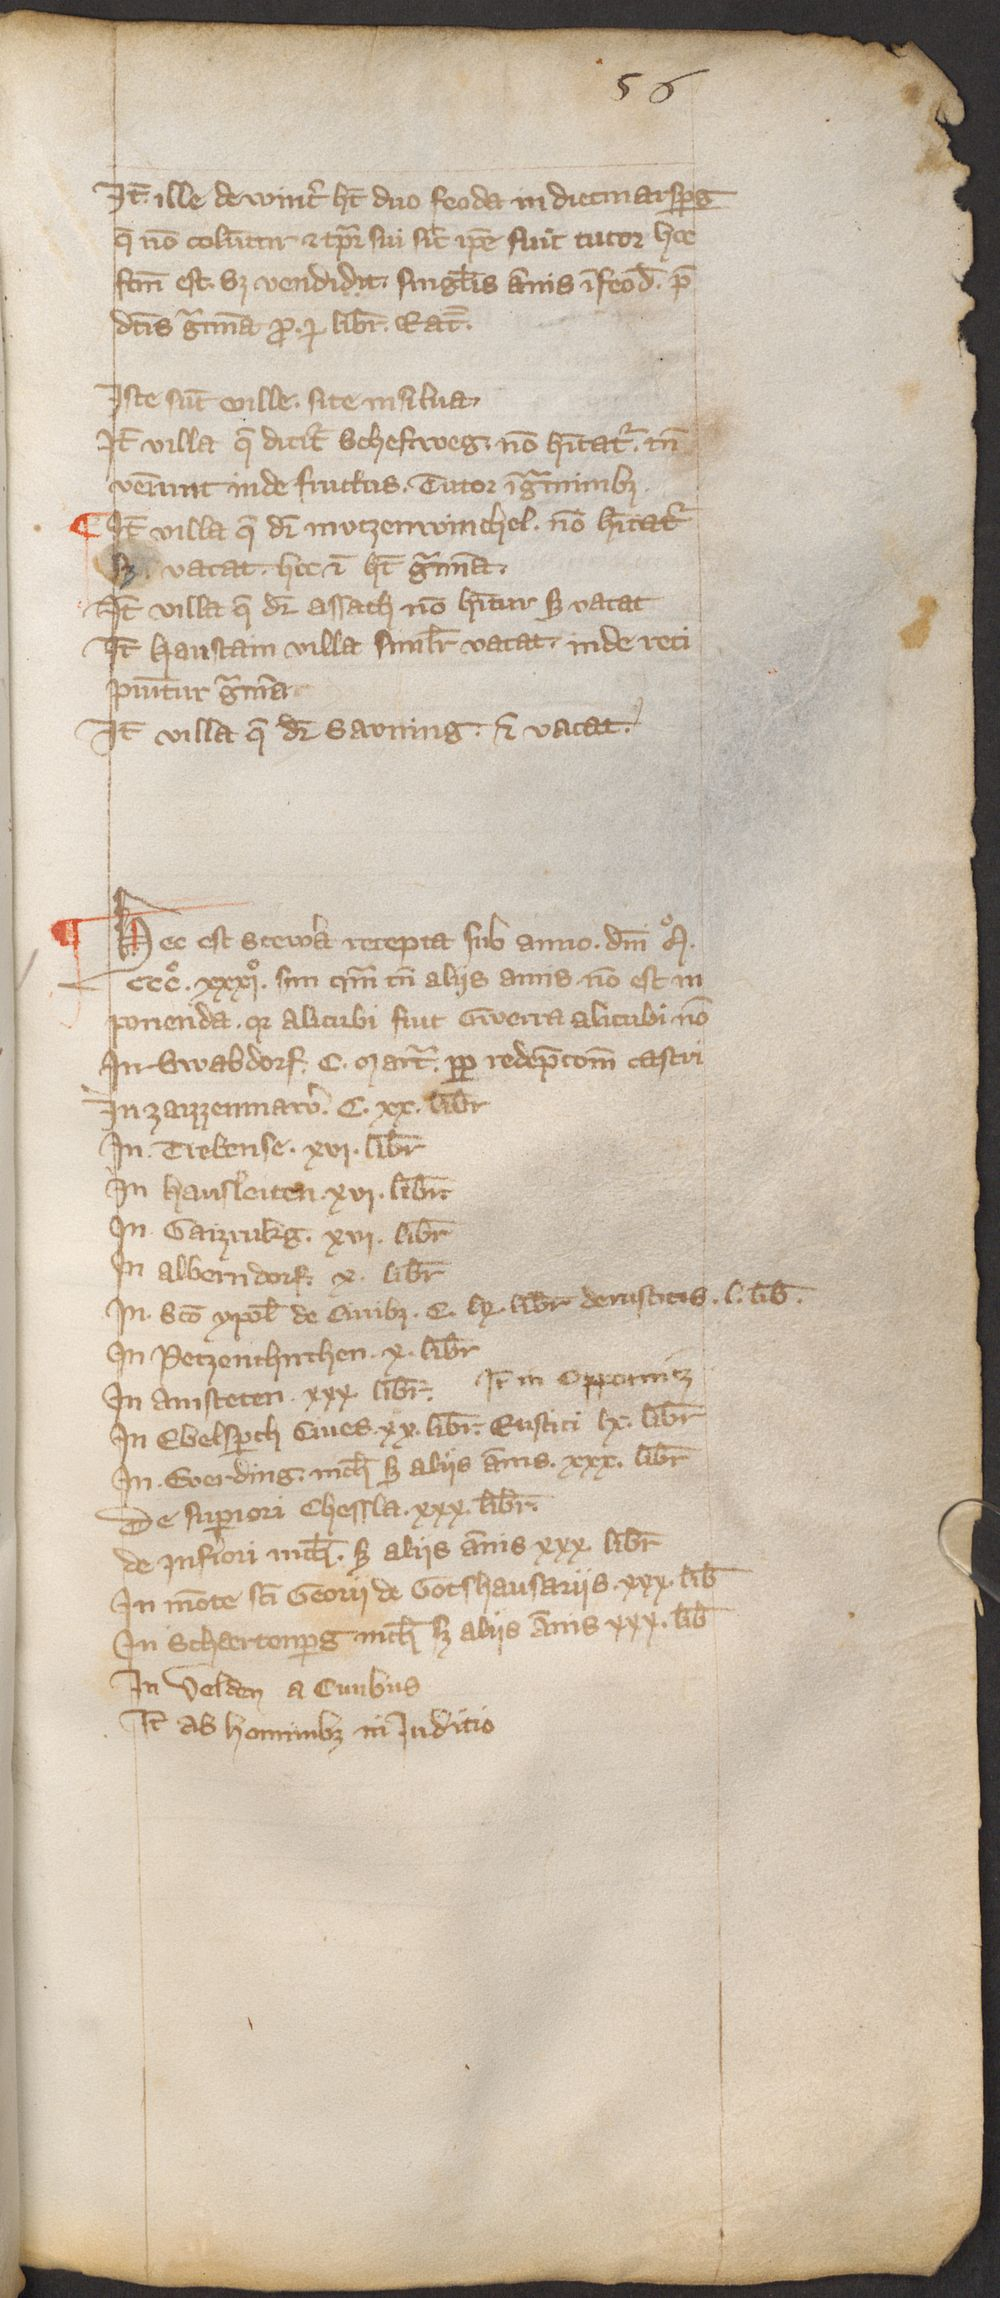 56
It̄ ille de wint̄ ht̄ duo feoda in dietmarsperg
q̄ nō colunt̄ur ⁊ tp̄r sui sic̄ ip̄e fuit tutor hec
fcm̄ est. sz vendidit. singl̄is ānis ī feod̄. p̄
dc̄is ḡmīa p̄. libr̄. Rat̄.
Iste sūt ville. site in silua
It̄ villa q̄ dicit̄ Scheftweg. nō hītat᷑. tn̄
veniunt inde fructus. Tutor ḡminibz
It̄ villa q̄ dr̄ mutzenwinchel. nō hītat᷑
sz. vacat. hec ī ht̄ ḡmīa.
It̄ villa q̄ dr̄ assach nō hītur sz vacat
It̄ haustain villa simlr̄ vacat. inde reci
piūtur ḡmīa
It̄ villa q̄ dr̄ Saruing. vacat.
Hec est Stewra recepta sub anno. dm̄i M̊.
ccc̊. xxxi̊. sm̄ qm̄ cū aliis annis. nō est in
ponenda. qr alicubi fuit Gwerra alicubi nō
In Swabdorf. C. marc̄. pp redēpcōm castri
In zaizzenmaur̄. C. xx. libr̄
In. Trebense. xvi. libr̄
In hausleiten. xvi. libr̄
In. Gaizrukg. xvi. libr̄
In alberndorf. x. libr̄
In. Scō ypol̄ de Ciuibz. C. lx. libr̄ de rusticis. l. lib̄.
In Petzenchirchen. x. libr̄
In amsteten. xxx libr̄. It̄ in Opponitz
In Ebelsperch Ciues. xx. libr̄. Rustici lx. libr̄
In. Everding. nich̄ sz aliis ānis. xxx. libr̄
De supiori Chessla. xxx. libr̄.
de Inf̄iori nich̄. sz aliis ānis xxx libr̄
In mōte sc̄i Georii de Gotshausariis. xxx. lib̄
In Schertenperg nich̄ sz aliis ānis xxx. lib̄
In Velden a Ciuibus
It̄ ab hominibz in Iudicio